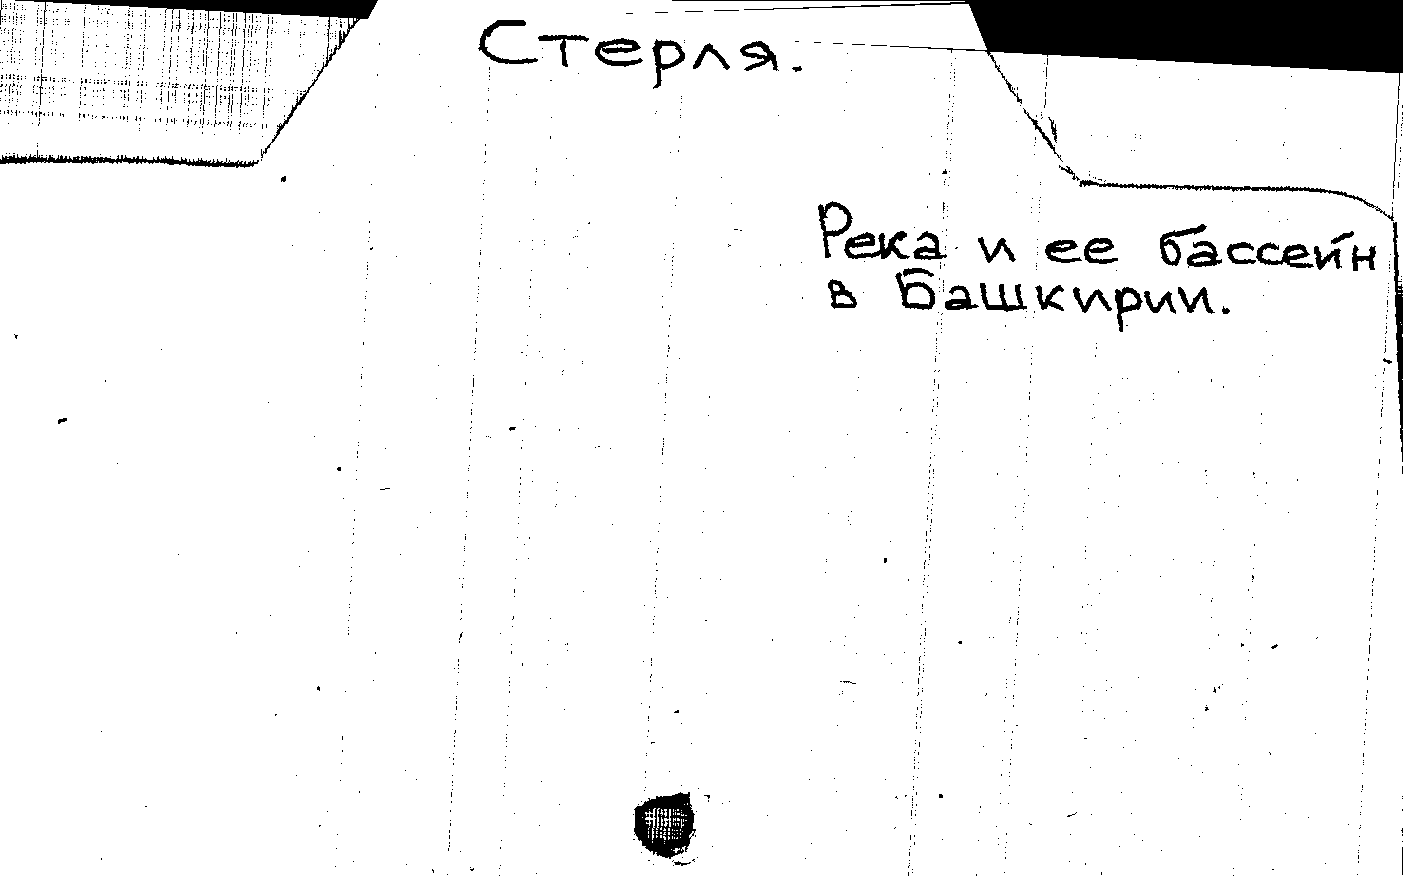 Стерля.
Река и ее бассейн
в Башкирии.